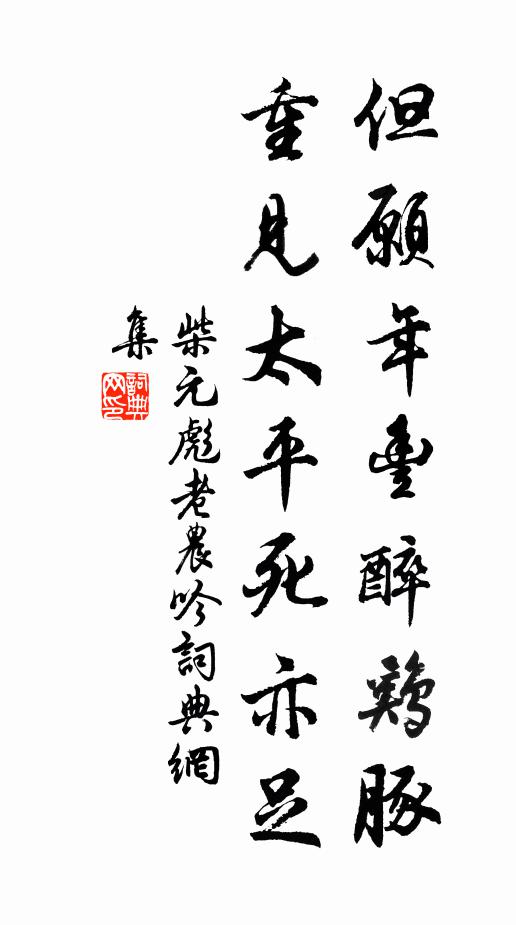 但願年豐醉鷄豚
重見太平死亦足
柴元彪老農吟詞典網
集
詞典
网印